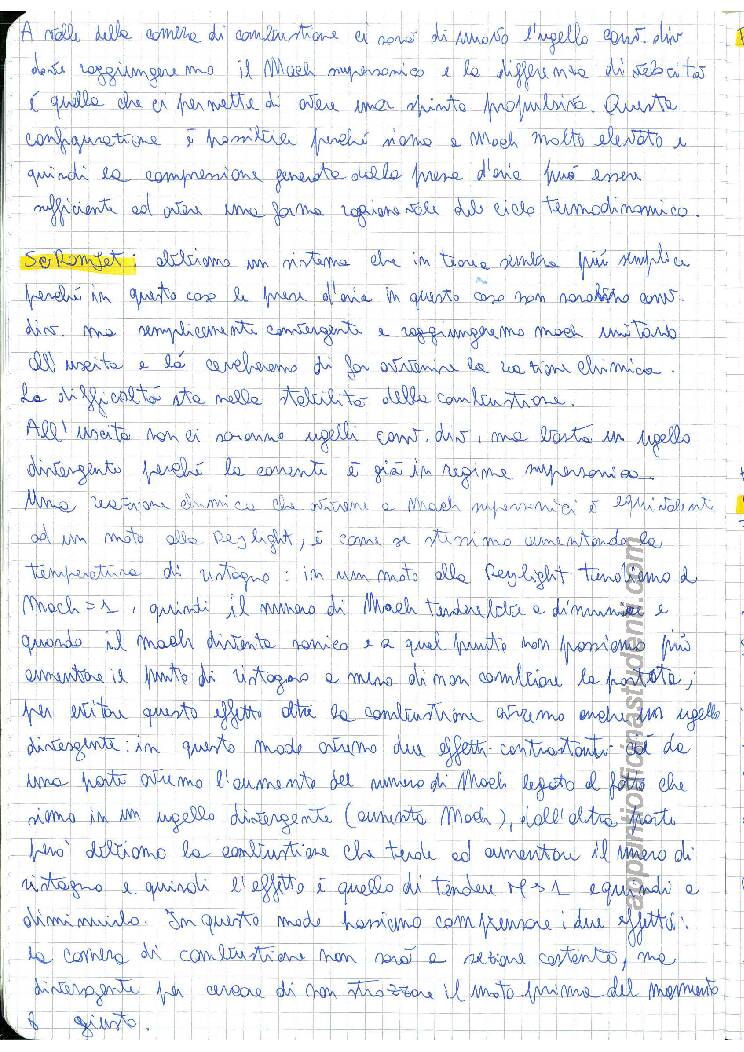 A valle della camera di combustione ci sarà di nuovo l'ugello conv. div
dove raggiungeremo il Mach supersonico e la differenza di velocità
è quella che ci permette di avere una spinta propulsiva. Questa
configurazione è possibile perché siamo a Mach molto elevato e
quindi la compressione generata dalla presa d'aria può essere
sufficiente ad avere una forma ragionevole del ciclo termodinamico.
ScRamJet: abbiamo un sistema che in teoria sembra più semplice
perché in questo caso le prese d'aria in questo caso non saranno conv.
div. ma semplicemente convergente e raggiungeremo mach unitario
all'uscita e là cercheremo di far avvenire la reazione chimica.
La difficoltà sta nella stabilità della combustione.
All'uscita non ci saranno ugelli conv. div, ma basta un ugello
divergente perché la corrente è già in regime supersonico.
Una reazione chimica che avviene a Mach supersonici è equivalente
ad un moto alla Reylight, è come se stessimo aumentando la
temperatura di ristagno: in un moto alla Reylight tendiamo a
Mach = 1, quindi il numero di Mach tenderebbe a diminuire e
quando il mach diventa sonico e a quel punto non possiamo più
aumentare il punto di ristagno a meno di non cambiare la portata;
per evitare questo effetto oltre la combustione avremo anche un ugello
divergente: in questo modo avremo due effetti contrastanti da
una parte avremo l'aumento del numero di Mach legato al fatto che
siamo in un ugello divergente (aumenta Mach), dall'altra parte
però abbiamo la combustione che tende ad aumentare il numero di
ristagno e quindi l'effetto è quello di tendere M → 1 e quindi a
diminuirlo. In questo modo possiamo compensare i due effetti:
la camera di combustione non sarà a sezione costante, ma
divergente per cercare di non strozzare il moto prima del momento
giusto.
8
appuntiofficinastudenti.com